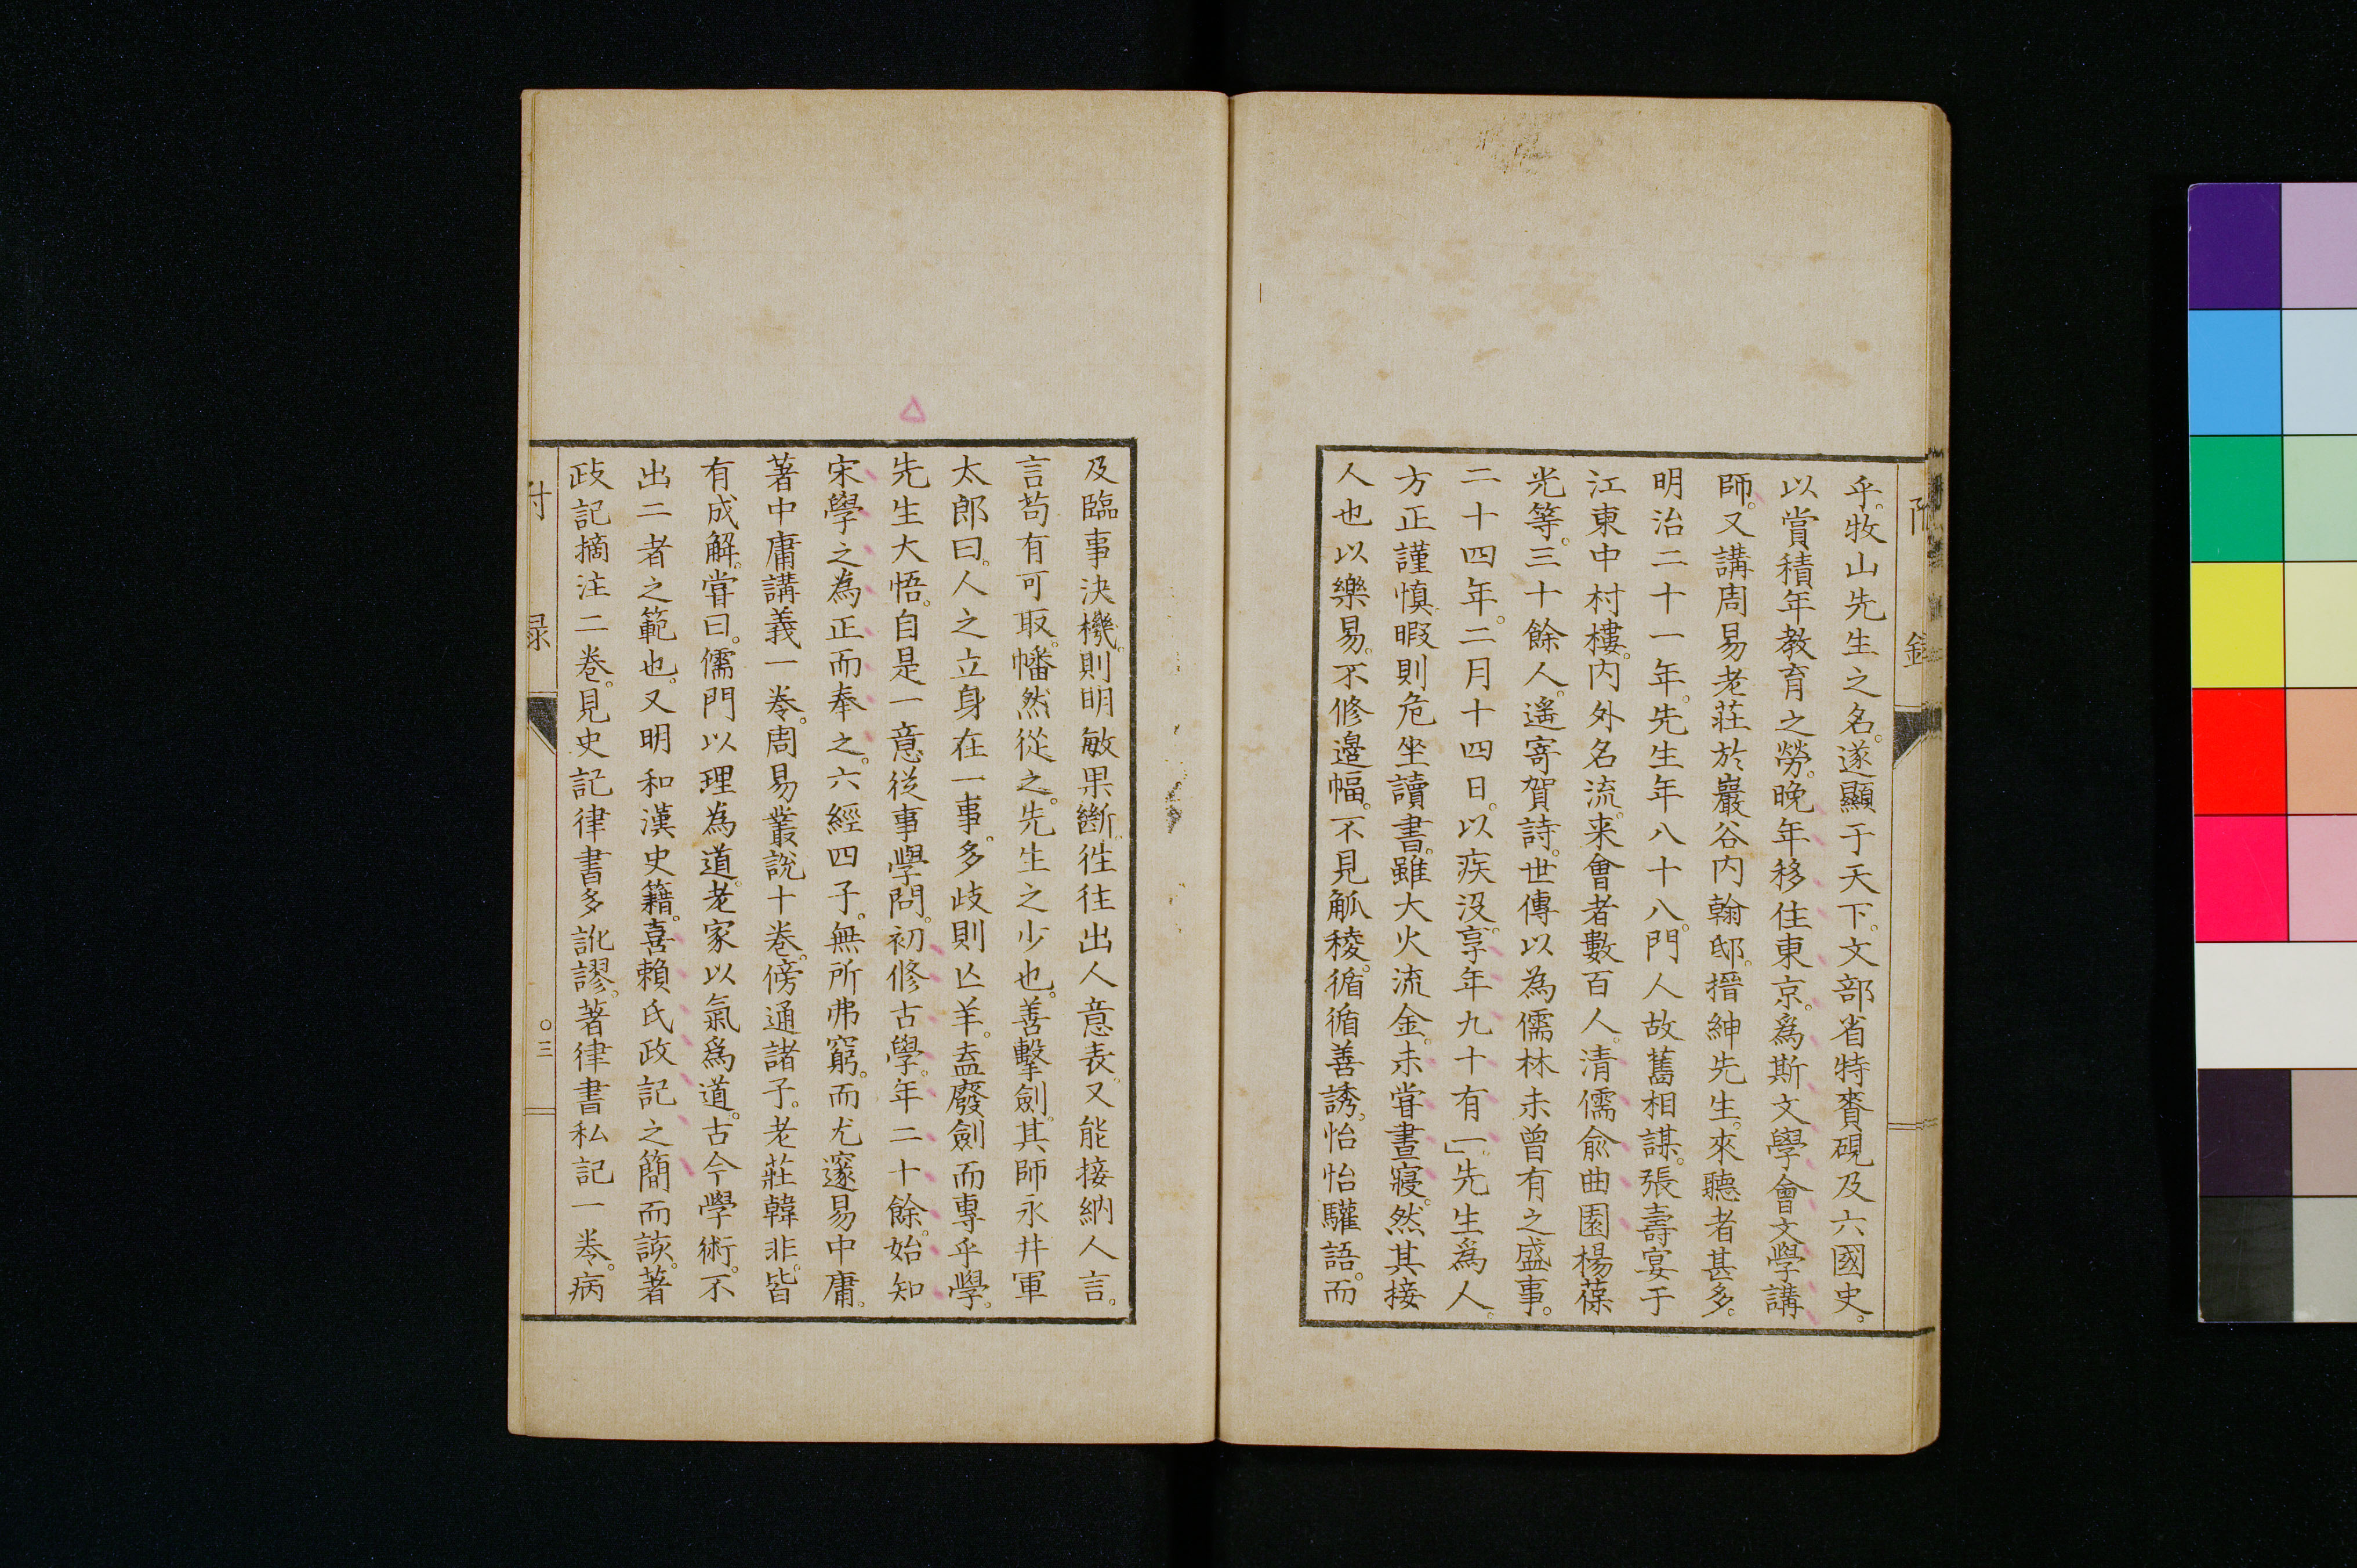 附錄
乎。牧山先生之名。遂顯于天下。文部省特賚硯及六國史。
以賞積年教育之勞。晚年移住東京。爲斯文學會文學講
師。又講周易老莊於巖谷内翰邸。搢紳先生。來聽者甚多。
明治二十一年。先生年八十八。門人故舊相謀。張壽宴于
江東中村樓。内外名流。来會者數百人。清儒兪曲園楊葆
光等。三十餘人。遥寄賀詩。世傳以為儒林未曽有之盛事。
二十四年。二月十四日。以疾沒。享年九十有一。」先生爲人。
方正謹慎。暇則危坐讀書。雖大火流金。未甞晝寢。然其接
人也以樂易。不修邉幅。不見觚稜。循循善誘。怡怡驩語。而
及臨事決機。則明敏果斷。徃往出人意表。又能接納人言。
言苟有可取。幡然從之。先生之少也。善擊劍。其師永井軍
太郎曰。人之立身在一事。多歧則亾羊。盍廢劍而專乎學。
先生大悟。自是一意従事學問。初修古學。年二十餘。始知
宋學之為正而奉之。六經四子。無所弗窮。而尤邃易中庸。
著中庸講義一卷。周易叢説十卷。傍通諸子。老莊韓非。皆
有成解。甞曰。儒門以理為道。老家以氣爲道。古今學術。不
出二者之範也。又明和漢史籍。喜賴氏政記之簡而該。著
政記摘注二卷。見史記律書多訛謬。著律書私記一卷。病
附録
○三